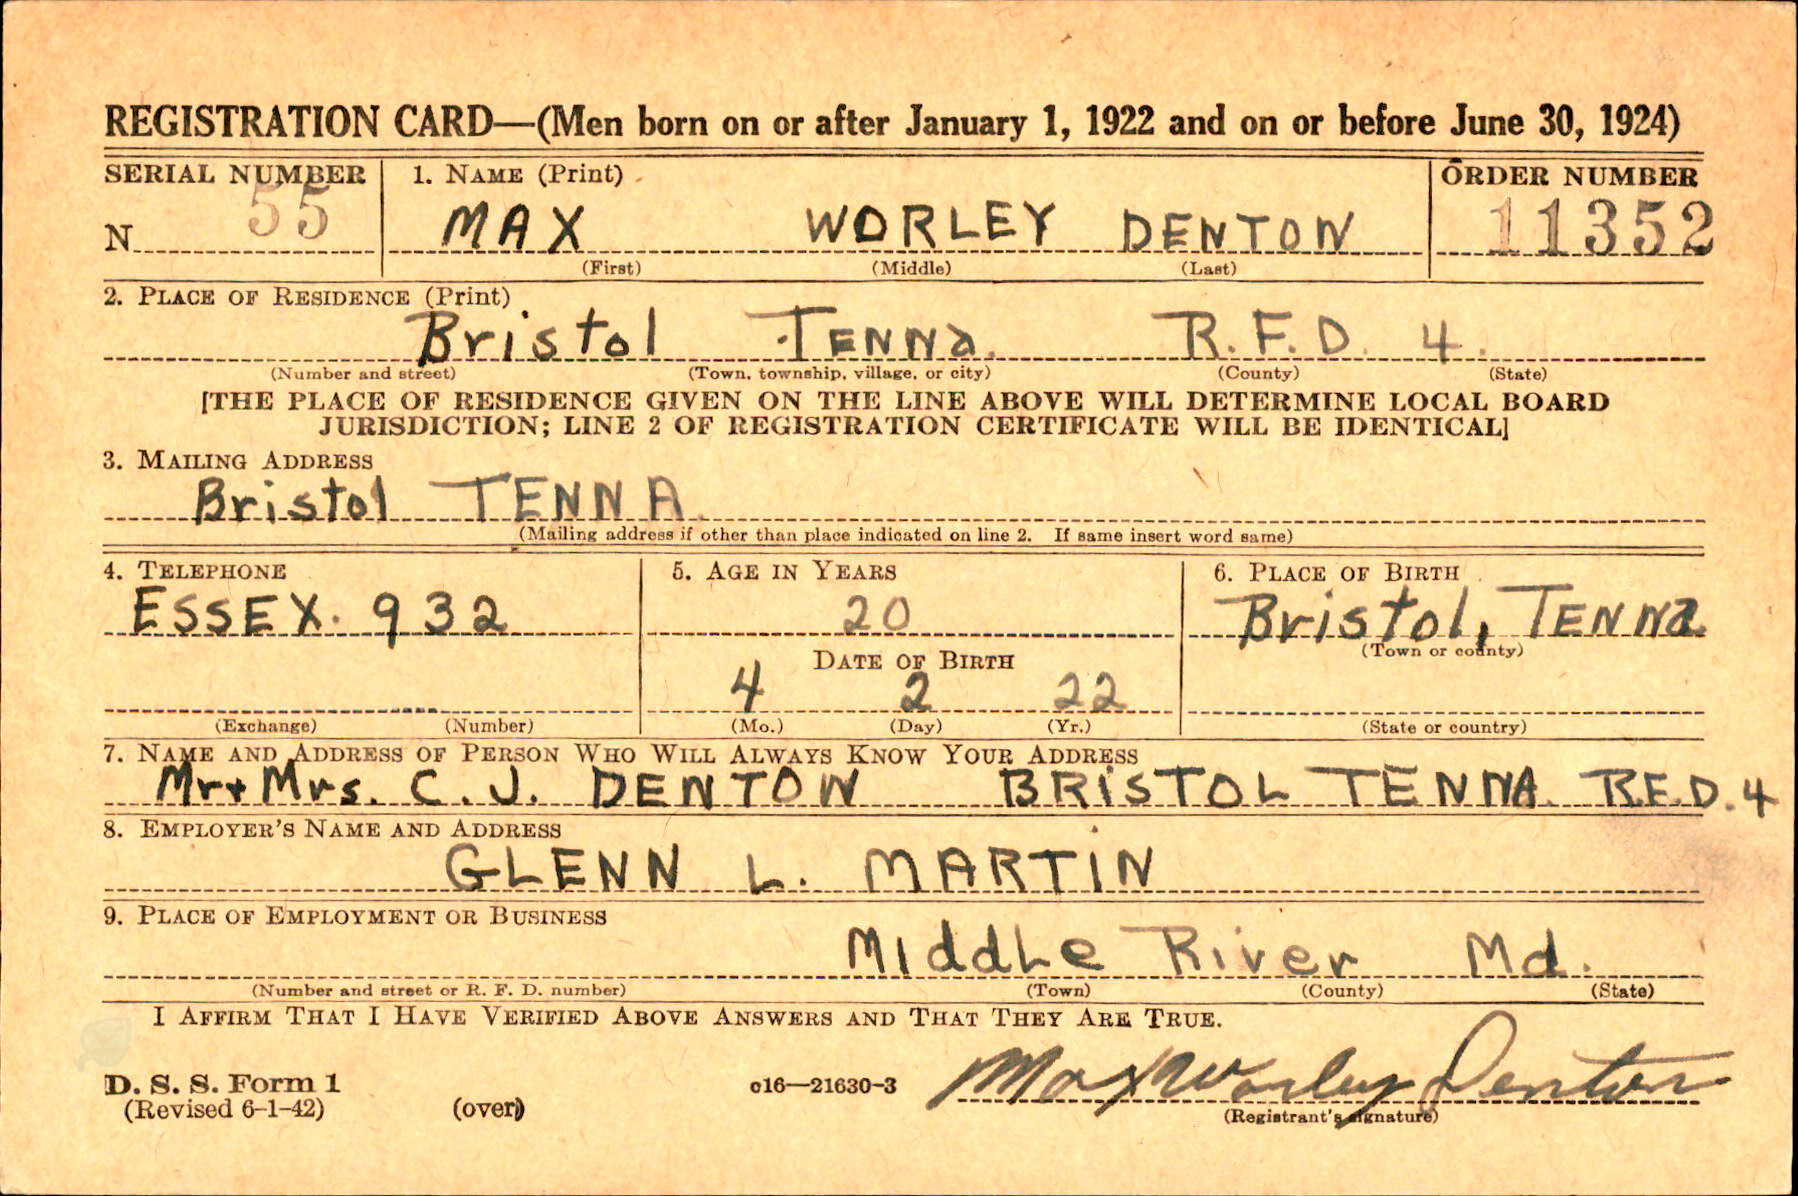 REGISTRATION CARD—(Men born on or after January 1, 1922 and on or before June 30, 1924)
SERIAL NUMBER 1. NAME (Print) ORDER NUMBER
N 55 MAX WORLEY DENTON 11352
(First) (Middle) (Last)
2. PLACE OF RESIDENCE (Print)
Bristol TENNa. R.F.D. 4.
(Number and street) (Town, township, village, or city) (County) (State)
[THE PLACE OF RESIDENCE GIVEN ON THE LINE ABOVE WILL DETERMINE LOCAL BOARD
JURISDICTION; LINE 2 OF REGISTRATION CERTIFICATE WILL BE IDENTICAL]
3. MAILING ADDRESS
Bristol TENNA.
(Mailing address if other than place indicated on line 2. If same insert word same)
4. TELEPHONE 5. AGE IN YEARS 6. PLACE OF BIRTH
ESSEX. 932 20 Bristol, TENNa.
DATE OF BIRTH (Town or county)
4 2 22
(Exchange) (Number) (Mo.) (Day) (Yr.) (State or country)
7. NAME AND ADDRESS OF PERSON WHO WILL ALWAYS KNOW YOUR ADDRESS
Mr + Mrs. C. J. DENTON BRiSTOL TENNA. R.F.D. 4
8. EMPLOYER'S NAME AND ADDRESS
GLENN L. MARTiN
9. PLACE OF EMPLOYMENT OR BUSINESS
MIddLe River Md.
(Number and street or R. F. D. number) (Town) (County) (State)
I AFFIRM THAT I HAVE VERIFIED ABOVE ANSWERS AND THAT THEY ARE TRUE.
D. S. S. Form 1
(Revised 6-1-42) (over) c16—21630-3 Max Worley Denton
(Registrant's signature)